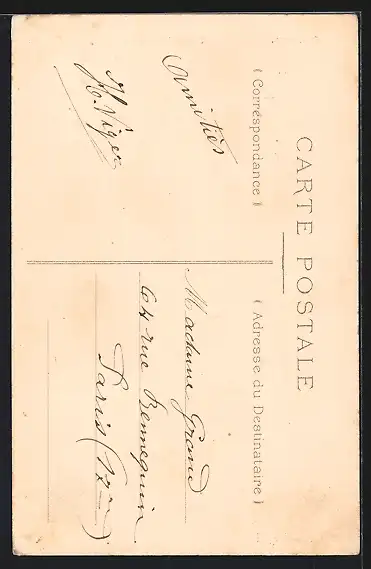 CARTE POSTALE
( Correspondance )
Amitiés
H. Viger
( Adresse du Destinataire )
Madame Grand
64 rue Bennequin
Paris (17me)